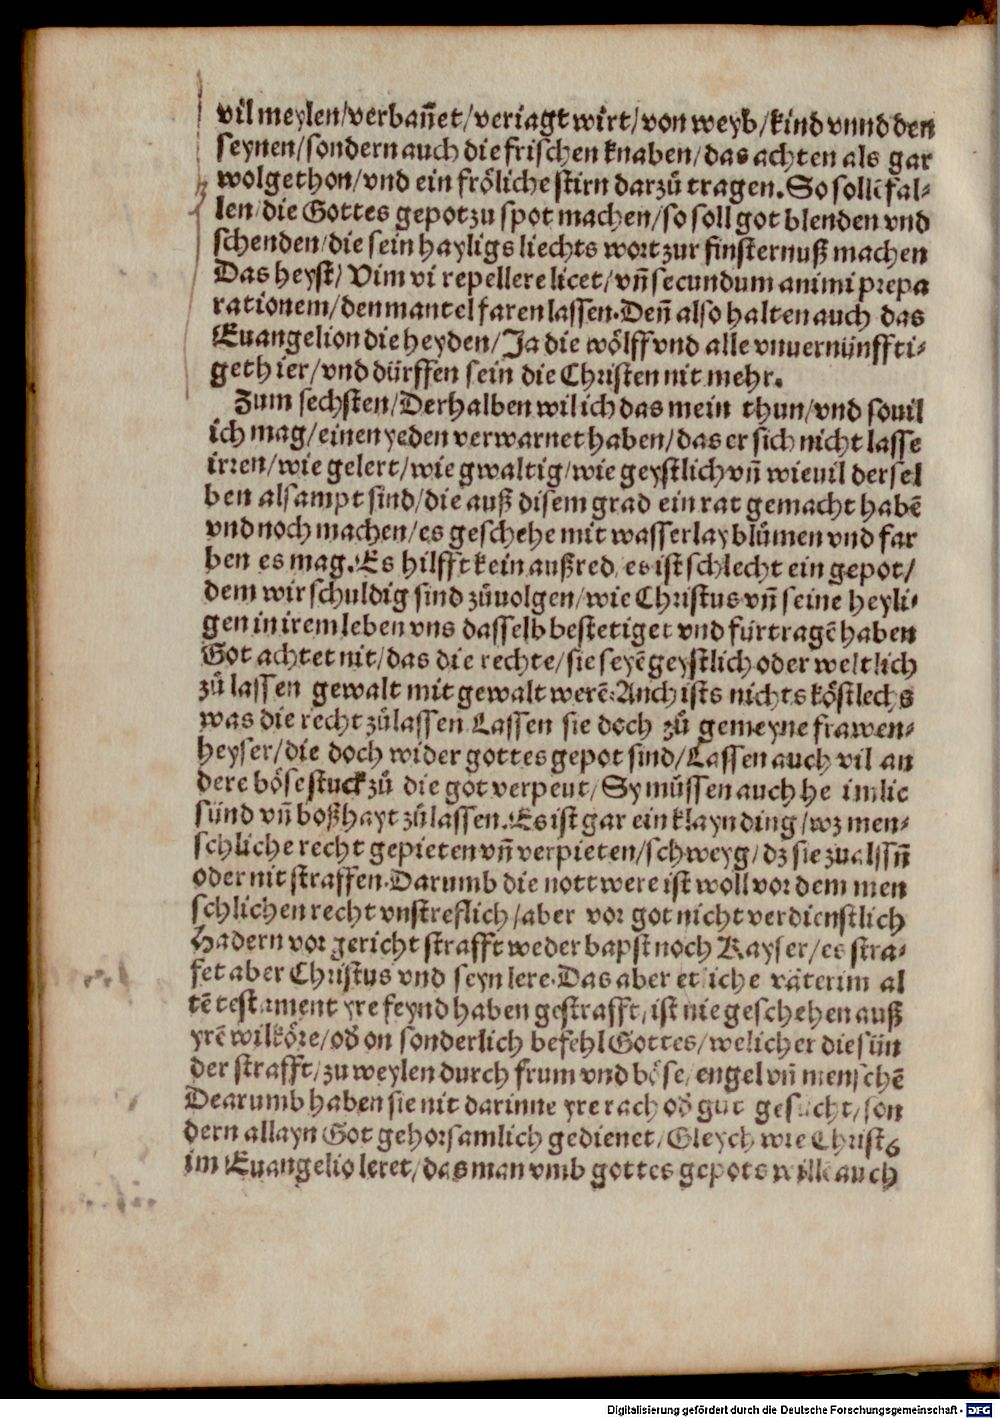 vil meylen/verbañet/veriagt wirt/von weyb/kind vnnd den
seynen/sondern auch die frischen knaben/das achten als gar
wolgethon/vnd ein fröliche stirn darzů tragen. So sollē fal-
len/die Gottes gepot zu spot machen/so soll got blenden vnd
schenden/die sein hayligs liechts wort zur finsternuß machen
Das heyst/ Vim vi repellere licet/vñ secundum animi prepa
rationem/den mantel faren lassen. Deñ also halten auch das
Euangelion die heyden/Ja die wölff vnd alle vnuernünffti-
gethier/vnd dürffen sein die Christen nit mehr.
Zum sechsten/Derhalben wil ich das mein thun/vnd souil
ich mag/einen yeden verwarnet haben/das er sich nicht lasse
irren/wie gelert/wie gwaltig/wie geystlich vñ wieuil dersel
ben alsampt sind/die auß disem grad ein rat gemacht habē
vnd noch machen/es geschehe mit wasserlay blůmen vnd far
ben es mag. Es hilfft kein außred/es ist schlecht ein gepot/
dem wir schuldig sind zůuolgen/wie Christus vñ seine heyli-
gen in irem leben vns dasselb bestetiget vnd fürtragē haben
Got achtet nit/das die rechte/sie seyē geystlich oder weltlich
zů lassen gewalt mit gewalt werē. Auch ists nichts köstlechs
was die recht zůlassen Lassen sie doch zů gemeyne frawen-
heyser/die doch wider gottes gepot sind/Lassen auch vil an
dere böse stuck zů die got verpeut/Sy müssen auch heimlic
sünd vñ boßhayt zů lassen. Es ist gar ein klayn ding/wz men-
schliche recht gepieten vñ verpieten/schweyg/dz sie zualssñ
oder nit straffen. Darumb die nott were ist woll vor dem men
schlichen recht vnstreflich/aber vor got nicht verdienstlich
Hadern vor gericht strafft weder bapst noch Kayser/es stra-
fet aber Christus vnd seyn lere. Das aber etliche väter im al
tē testament yre feynd haben gestrafft/ist nie geschehen auß
yrē wilköre/oď on sonderlich befehl Gottes/welicher die sün
der strafft/zu weylen durch frum vnd böse/engel vñ menschē
Dearumb haben sie nit darinne yre rach oď gut gesucht/son
dern allayn Got gehorsamlich gedienet/Gleych wie Christꝰ
im Euangelio leret/das man vmb gottes gepots wille auch
Digitalisierung gefördert durch die Deutsche Forschungsgemeinschaft - DFG